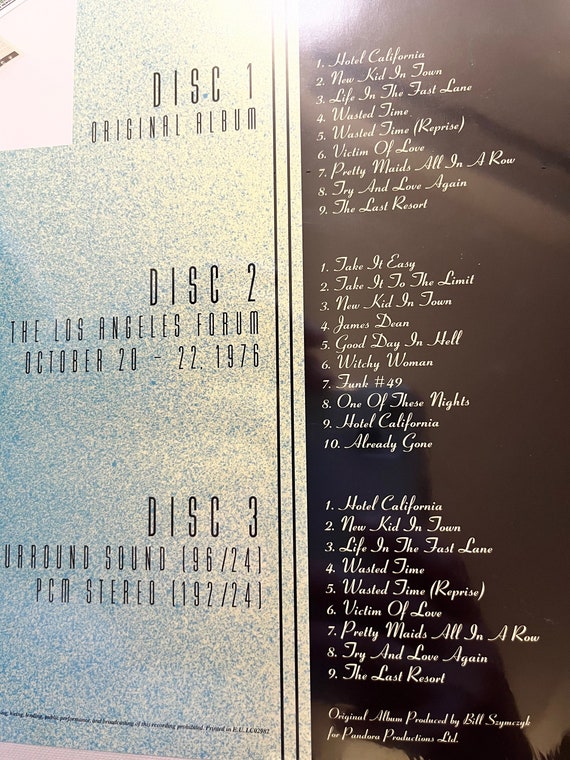 DISC 1
ORIGINAL ALBUM
1. Hotel California
2. New Kid In Town
3. Life In The Fast Lane
4. Wasted Time
5. Wasted Time (Reprise)
6. Victim Of Love
7. Pretty Maids All In A Row
8. Try And Love Again
9. The Last Resort
DISC 2
THE LOS ANGELES FORUM
OCTOBER 20 - 22, 1976
1. Take It Easy
2. Take It To The Limit
3. New Kid In Town
4. James Dean
5. Good Day In Hell
6. Witchy Woman
7. Funk #49
8. One Of These Nights
9. Hotel California
10. Already Gone
DISC 3
URROUND SOUND (96/24)
PCM STEREO (192/24)
1. Hotel California
2. New Kid In Town
3. Life In The Fast Lane
4. Wasted Time
5. Wasted Time (Reprise)
6. Victim Of Love
7. Pretty Maids All In A Row
8. Try And Love Again
9. The Last Resort
hiring, lending, public performance, and broadcasting of this recording prohibited. Printed in E.U. LC02982
Original Album Produced by Bill Szymczyk
for Pandora Productions Ltd.